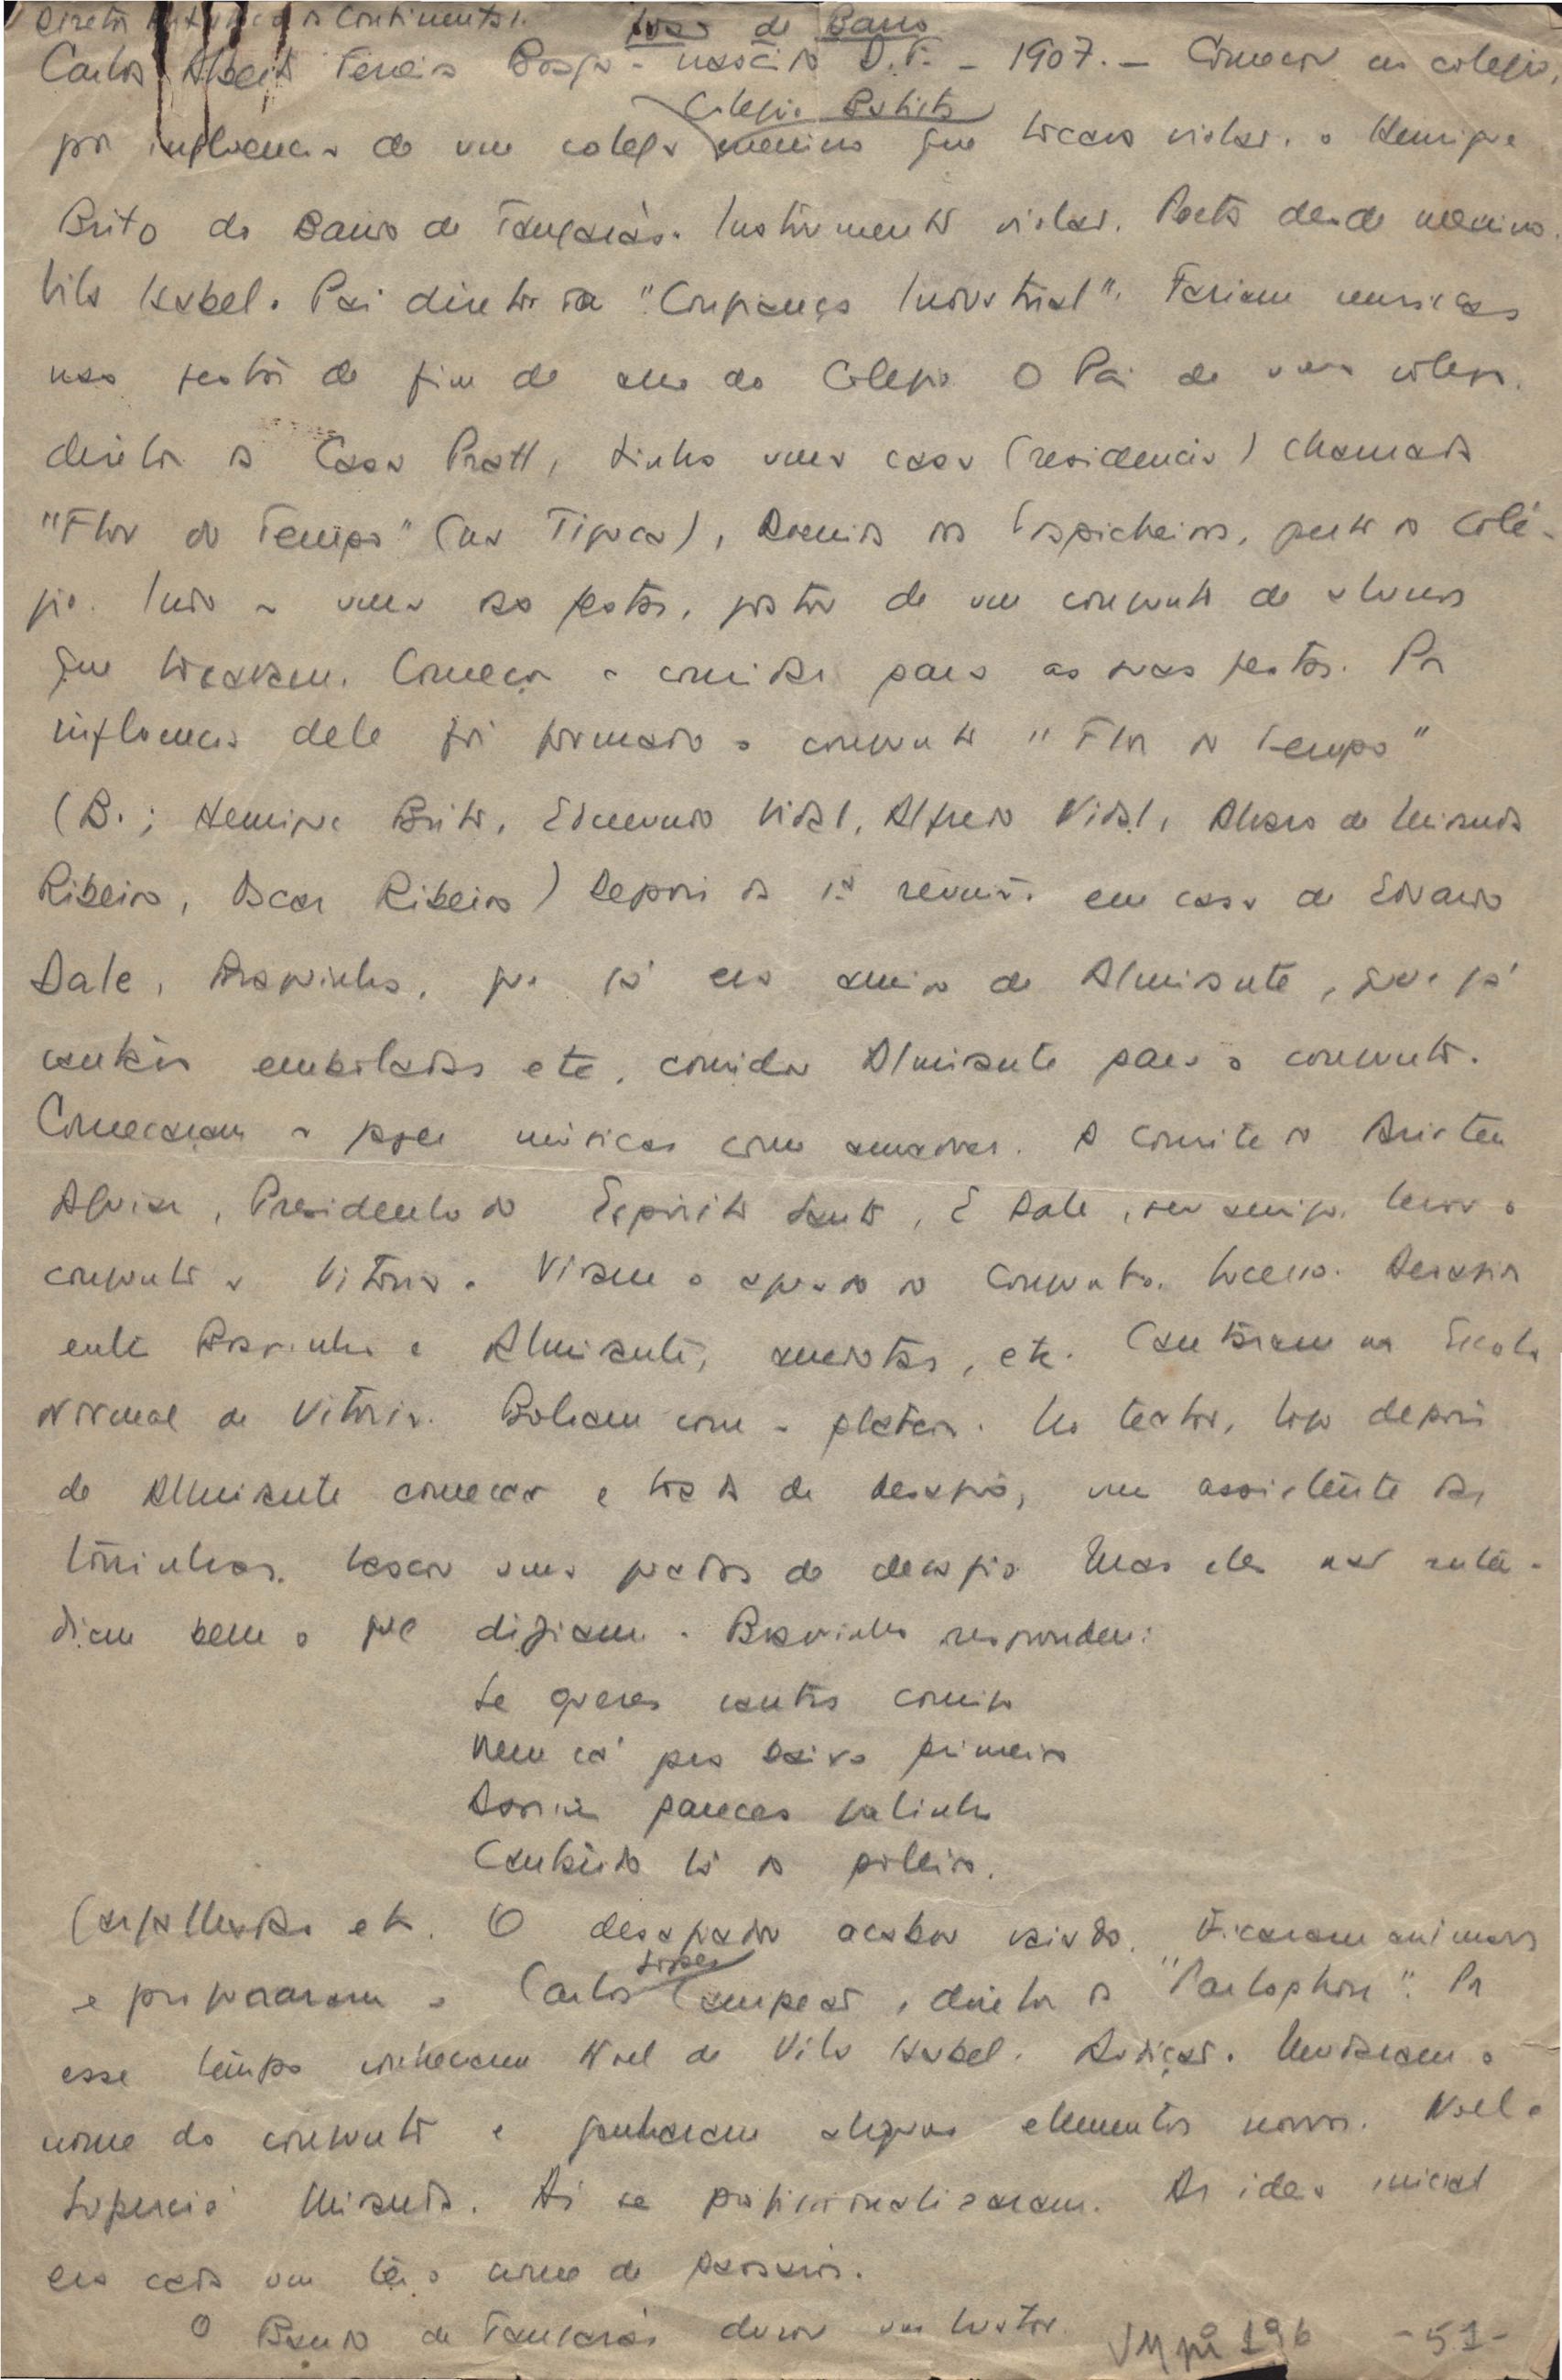 Diretor Artistico da Continental. João de Barro
Carlos Alberto Ferreira Braga - nascido D.F. - 1907. - Começou no colegio,
Colegio Batista
por influencia de um colega menino que tocava violão. o Henrique
Brito do Bando de Tangarás. Instrumento violão. Poeta desde menino.
Vila Isabel. Pai diretor da "Confiança Industrial". Faziam musicas
nas festas de fim de ano do Colegio O Pai de um colega.
diretor da Casa Pratt, tinha uma casa (residencia) chamada
"Flor do Tempo" (na Tijuca), perto do Colé-
gio. Indo a uma das festas, gostou de um conjunto de alunos
que tocavam. Começou a convidar para as suas festas. Por
influencia dele foi formado o conjunto "Flor do tempo"
(B.; Henrique Brito, Edmundo Vidal, Alfredo Vidal, Alvaro de Miranda
Ribeiro, Oscar Ribeiro) Depois da 1ª reunião em casa de Eduardo
Dale, Braguinha, que já era amigo de Almirante, que já
cantava emboladas etc, convidou Almirante para o conjunto.
Começaram a fazer músicas como amadores. A convite do Aristeu
Aguiar, Presidente do Espirito Santo, E Dale, seu amigo, levou o
conjunto a Vitória. Viram o agrado do Conjunto. Sucesso. Desafios
entre Braguinha e Almirante, anedotas, etc. Cantaram na Escola
Normal de Vitória. Boliam com a plateia. No teatro, logo depois
de Almirante começar a toada de desafio, um assistente das
torrinhas. lascou uma quadra de desafio Mas eles não enten-
diam bem o que diziam. Braguinha respondeu:
Se queres cantar comigo
Vem cá pra baixo primeiro
Assim pareces galinha
Cantando lá do poleiro.
Gargalhadas etc. O desafiador acabou saindo. Ficaram animados
Lopes
e procuraram o Carlos Campeão, diretor da "Parlophon". Por
esse tempo conheceram Noel de Vila Isabel. Adição. Mudaram o
nome do conjunto e ganharam alguns elementos novos. Noel e
Luperce Miranda. Aí se profissionalizaram. A idea inicial
era cada um ter o nome de passaro.
O Bando de Tangarás durou um lustro. 196 -51-